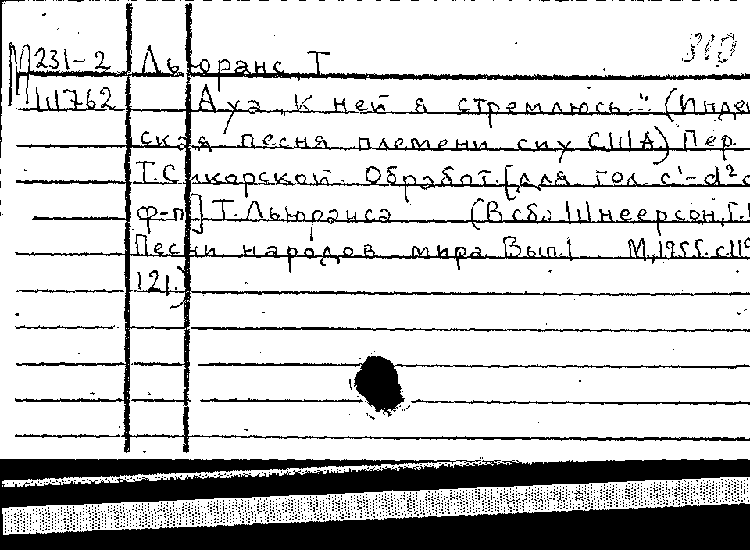 310
М231-2 Льюранс, Т.
Ш762 Ауа „К ней я стремлюсь." (Индей
ская песня племени сиу США) Пер.
Т. Сикорской. Обработ. [для гол. c¹-d² с
ф-п] Т. Льюранса (В сб.: Шнеерсон, Г.
Песни народов мира. Вып. I М, 1955. с. 119
121.)